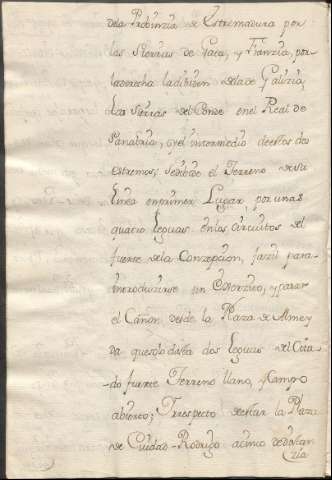 dela Probinzia de Estremadura por
las Sierras de Gata, y Franzia, por
la derecha la dibiden dela de Galizia,
las Sierras del Conde en el Real de
Sanabria, y el intermedio de estos dos
estremos, se dibide el Terreno de su
linea en primer Lugar, por unas
quatro leguas en los circuitos del
fuerte dela Concepcion, fazil para
introduzirse un Exerzito, y pasar
el Cañon desde la Plaza de Almey
da que solo dista dos leguas del Cita
do fuerte Terreno llano, y Campo
abierto; Y respecto de estar la Plaza
de Ciudad-Rodrigo a cinco de distan
zia